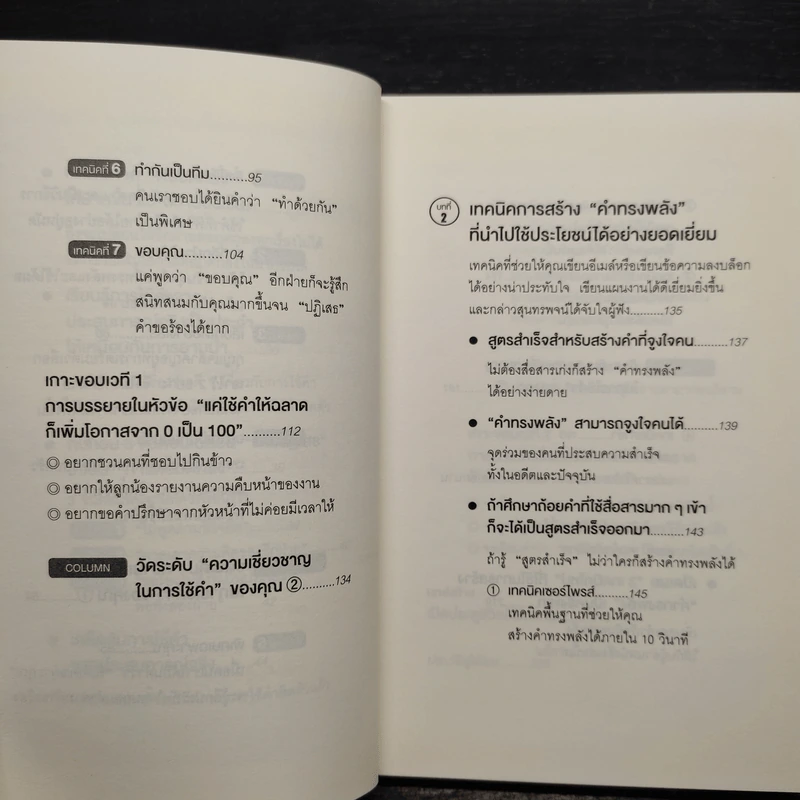 เทคนิคที่ 6 ทำกันเป็นทีม..........95
คนเราชอบได้ยินคำว่า “ทำด้วยกัน”
เป็นพิเศษ
เทคนิคที่ 7 ขอบคุณ..........104
แค่พูดว่า “ขอบคุณ” อีกฝ่ายก็จะรู้สึก
สนิทสนมกับคุณมากขึ้นจน “ปฏิเสธ”
คำขอร้องได้ยาก
เกาะขอบเวที 1
การบรรยายในหัวข้อ “แค่ใช้คำให้ฉลาด
ก็เพิ่มโอกาสจาก 0 เป็น 100”..........112
◎ อยากชวนคนที่ชอบไปกินข้าว
◎ อยากให้ลูกน้องรายงานความคืบหน้าของงาน
◎ อยากขอคำปรึกษาจากหัวหน้าที่ไม่ค่อยมีเวลาให้
COLUMN วัดระดับ “ความเชี่ยวชาญ
ในการใช้คำ” ของคุณ ②..........134
บทที่ 2 เทคนิคการสร้าง “คำทรงพลัง”
ที่นำไปใช้ประโยชน์ได้อย่างยอดเยี่ยม
เทคนิคที่ช่วยให้คุณเขียนอีเมล์หรือเขียนข้อความลงบล็อก
ได้อย่างน่าประทับใจ เขียนแผนงานได้ดีเยี่ยมยิ่งขึ้น
และกล่าวสุนทรพจน์ได้จับใจผู้ฟัง..........135
● สูตรสำเร็จสำหรับสร้างคำที่จูงใจคน..........137
ไม่ต้องสื่อสารเก่งก็สร้าง “คำทรงพลัง”
ได้อย่างง่ายดาย
● “คำทรงพลัง” สามารถจูงใจคนได้..........139
จุดร่วมของคนที่ประสบความสำเร็จ
ทั้งในอดีตและปัจจุบัน
● ถ้าศึกษาถ้อยคำที่ใช้สื่อสารมาก ๆ เข้า
ก็จะได้เป็นสูตรสำเร็จออกมา..........143
ถ้ารู้ “สูตรสำเร็จ” ไม่ว่าใครก็สร้างคำทรงพลังได้
① เทคนิคเซอร์ไพรส์..........145
เทคนิคพื้นฐานที่ช่วยให้คุณ
สร้างคำทรงพลังได้ภายใน 10 วินาที